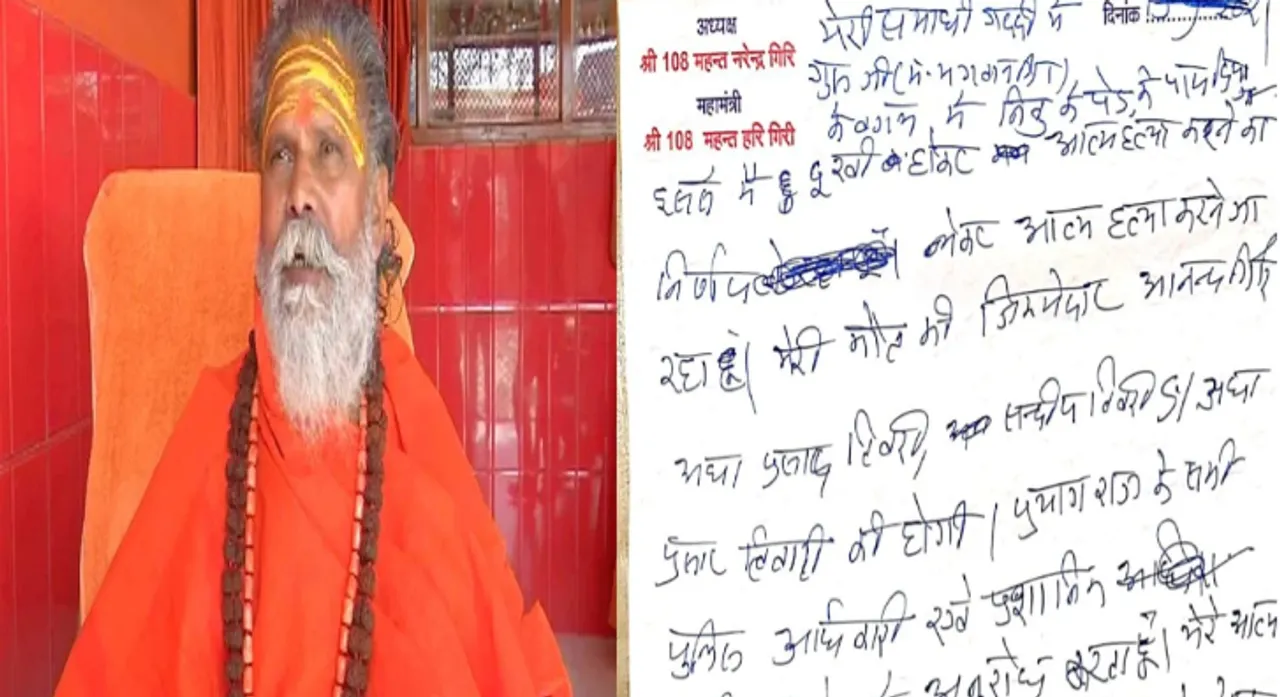 अध्यक्ष
श्री 108 महन्त नरेन्द्र गिरि
महामंत्री
श्री 108 महन्त हरि गिरी
दिनांक
मेरी समाधी गददी में
गुरू जी
के बगल में निबु के पेड़ के पास दिया
इसलिए मैं दुखी होकर आत्म हत्या करने का
निर्णय लेकर आत्म हत्या करने जा
रहा हूँ। मेरी मौत की जिम्मेदार आनन्द गिरि
अधा प्रसाद तिवारी सन्दीप तिवारी अधा
प्रसाद तिवारी की होगी। प्रयाग राज के सभी
पुलिस अधिकारी एवं प्रशासनिक
अनुरोध करता हूँ। मेरे आत्म